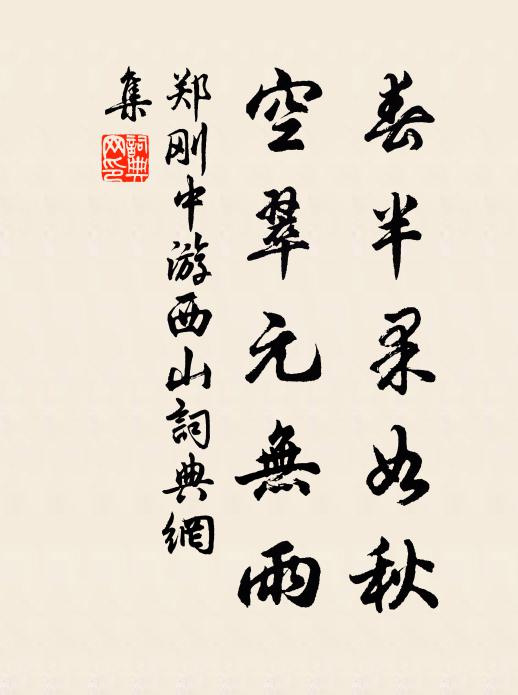 春半果如秋
空翠元無雨
郑刚中游西山詞典網
集
詞典
网印